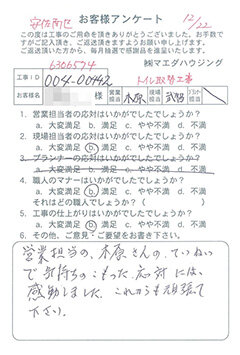 安佐南区 お客様アンケート 12/22
この度は工事のご用命を頂きありがとうございました。お手数で
すがご記入頂き、ご返送頂きますようお願い申し上げます。
ご返送いただいた方から、毎月抽選で感謝品を進呈いたします。
6306574 ㈱マエダハウジング
工事ID 0004-00442 トイレ取替工事
お客様名 様 営業担当 木原 現場担当 武西
1. 営業担当者の応対はいかがでしたでしょうか?
a. 大変満足 b. 満足 c. やや不満 d. 不満
2. 現場担当者の応対はいかがでしたでしょうか?
a. 大変満足 b. 満足 c. やや不満 d. 不満
3. プランナーの応対はいかがでしたでしょうか?
a. 大変満足 b. 満足 c. やや不満 d. 不満
4. 職人のマナーはいかがでしたでしょうか?
a. 大変満足 b. 満足 c. やや不満 d. 不満
それはどの職人でしょうか( )
5. 工事の仕上がりはいかがでしたでしょうか?
a. 大変満足 b. 満足 c. やや不満 d. 不満
6. その他、ご意見・ご要望をお書き下さい。
営業担当の、木原さんの、ていねい
で気持ちのこもった応対には、
感動しました。これからも頑張って
下さい。